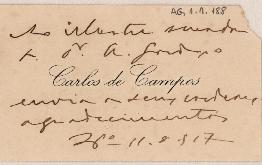 AG, 1.1.188
Ao illustre senador
Dr. A. Gordo,
Carlos de Campos
envia os seus cordeaes
agradecimentos
11-8-917